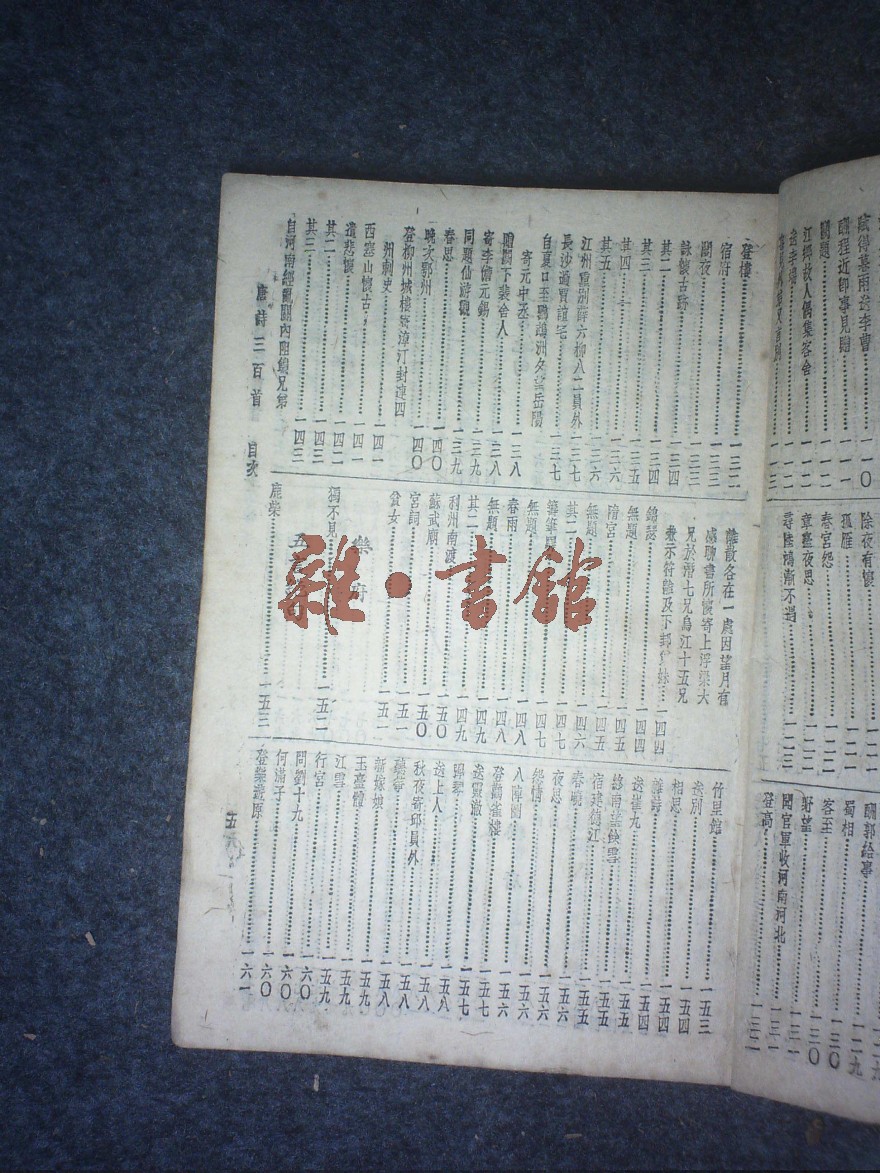 登樓……一三二
宿府……一三三
閣夜……一三三
詠懷古跡……一三四
其二……一三四
其三……一三五
其四……一三六
其五……一三六
江州重別薛六柳八二員外……一三七
長沙過賈誼宅……一三七
自夏口至鸚鵡洲夕望岳陽
寄元中丞……一三八
贈闕下裴舍人……一三八
寄李儋元錫……一三九
同題仙游觀……一三九
春思……一四〇
晚次鄂州……一四〇
登柳州城樓寄漳汀封連四
州刺史……一四一
西塞山懷古……一四一
遣悲懷……一四二
其二……一四三
其三……一四三
自河南經亂關內阻饑兄弟
離散各在一處因望月有
感聊書所懷寄上浮梁大
兄於潛七兄烏江十五兄
兼示符離及下邽弟妹……一四四
錦瑟……一四四
無題……一四五
隋宮……一四五
無題……一四六
其二……一四七
籌筆驛……一四七
無題……一四八
春雨……一四八
無題……一四九
其二……一四九
利州南渡……一五〇
蘇武廟……一五〇
宮詞……一五一
貧女……一五一
樂府
獨不見……一五二
五
鹿柴……一五三
竹里館……一五三
送別……一五四
相思……一五四
雜詩……一五四
送崔九……一五五
終南望餘雪……一五五
宿建德江……一五五
春曉……一五五
夜思……一五六
怨情……一五六
八陣圖……一五六
登鸛雀樓……一五六
送靈澈……一五七
彈琴……一五七
送上人……一五八
秋夜寄邱員外……一五八
聽箏……一五八
新嫁娘……一五九
玉臺體……一五九
江雪……一五九
行宮……一五九
問劉十九……一六〇
何滿子……一六〇
登樂遊原……一六一
唐詩三百首 目次
五
賦得暮雨送李曹
酬程近卽事見贈
闕題
江鄉故人偶集客舍
送李端
除夜有懷
孤雁
春宮怨……一二二
章臺夜思……一二二
尋陸鴻漸不遇……一二三
酬郭給事
蜀相……一二九
客至……一三〇
野望……一三〇
聞官軍收河南河北……一三一
登高……一三二
雜·書館